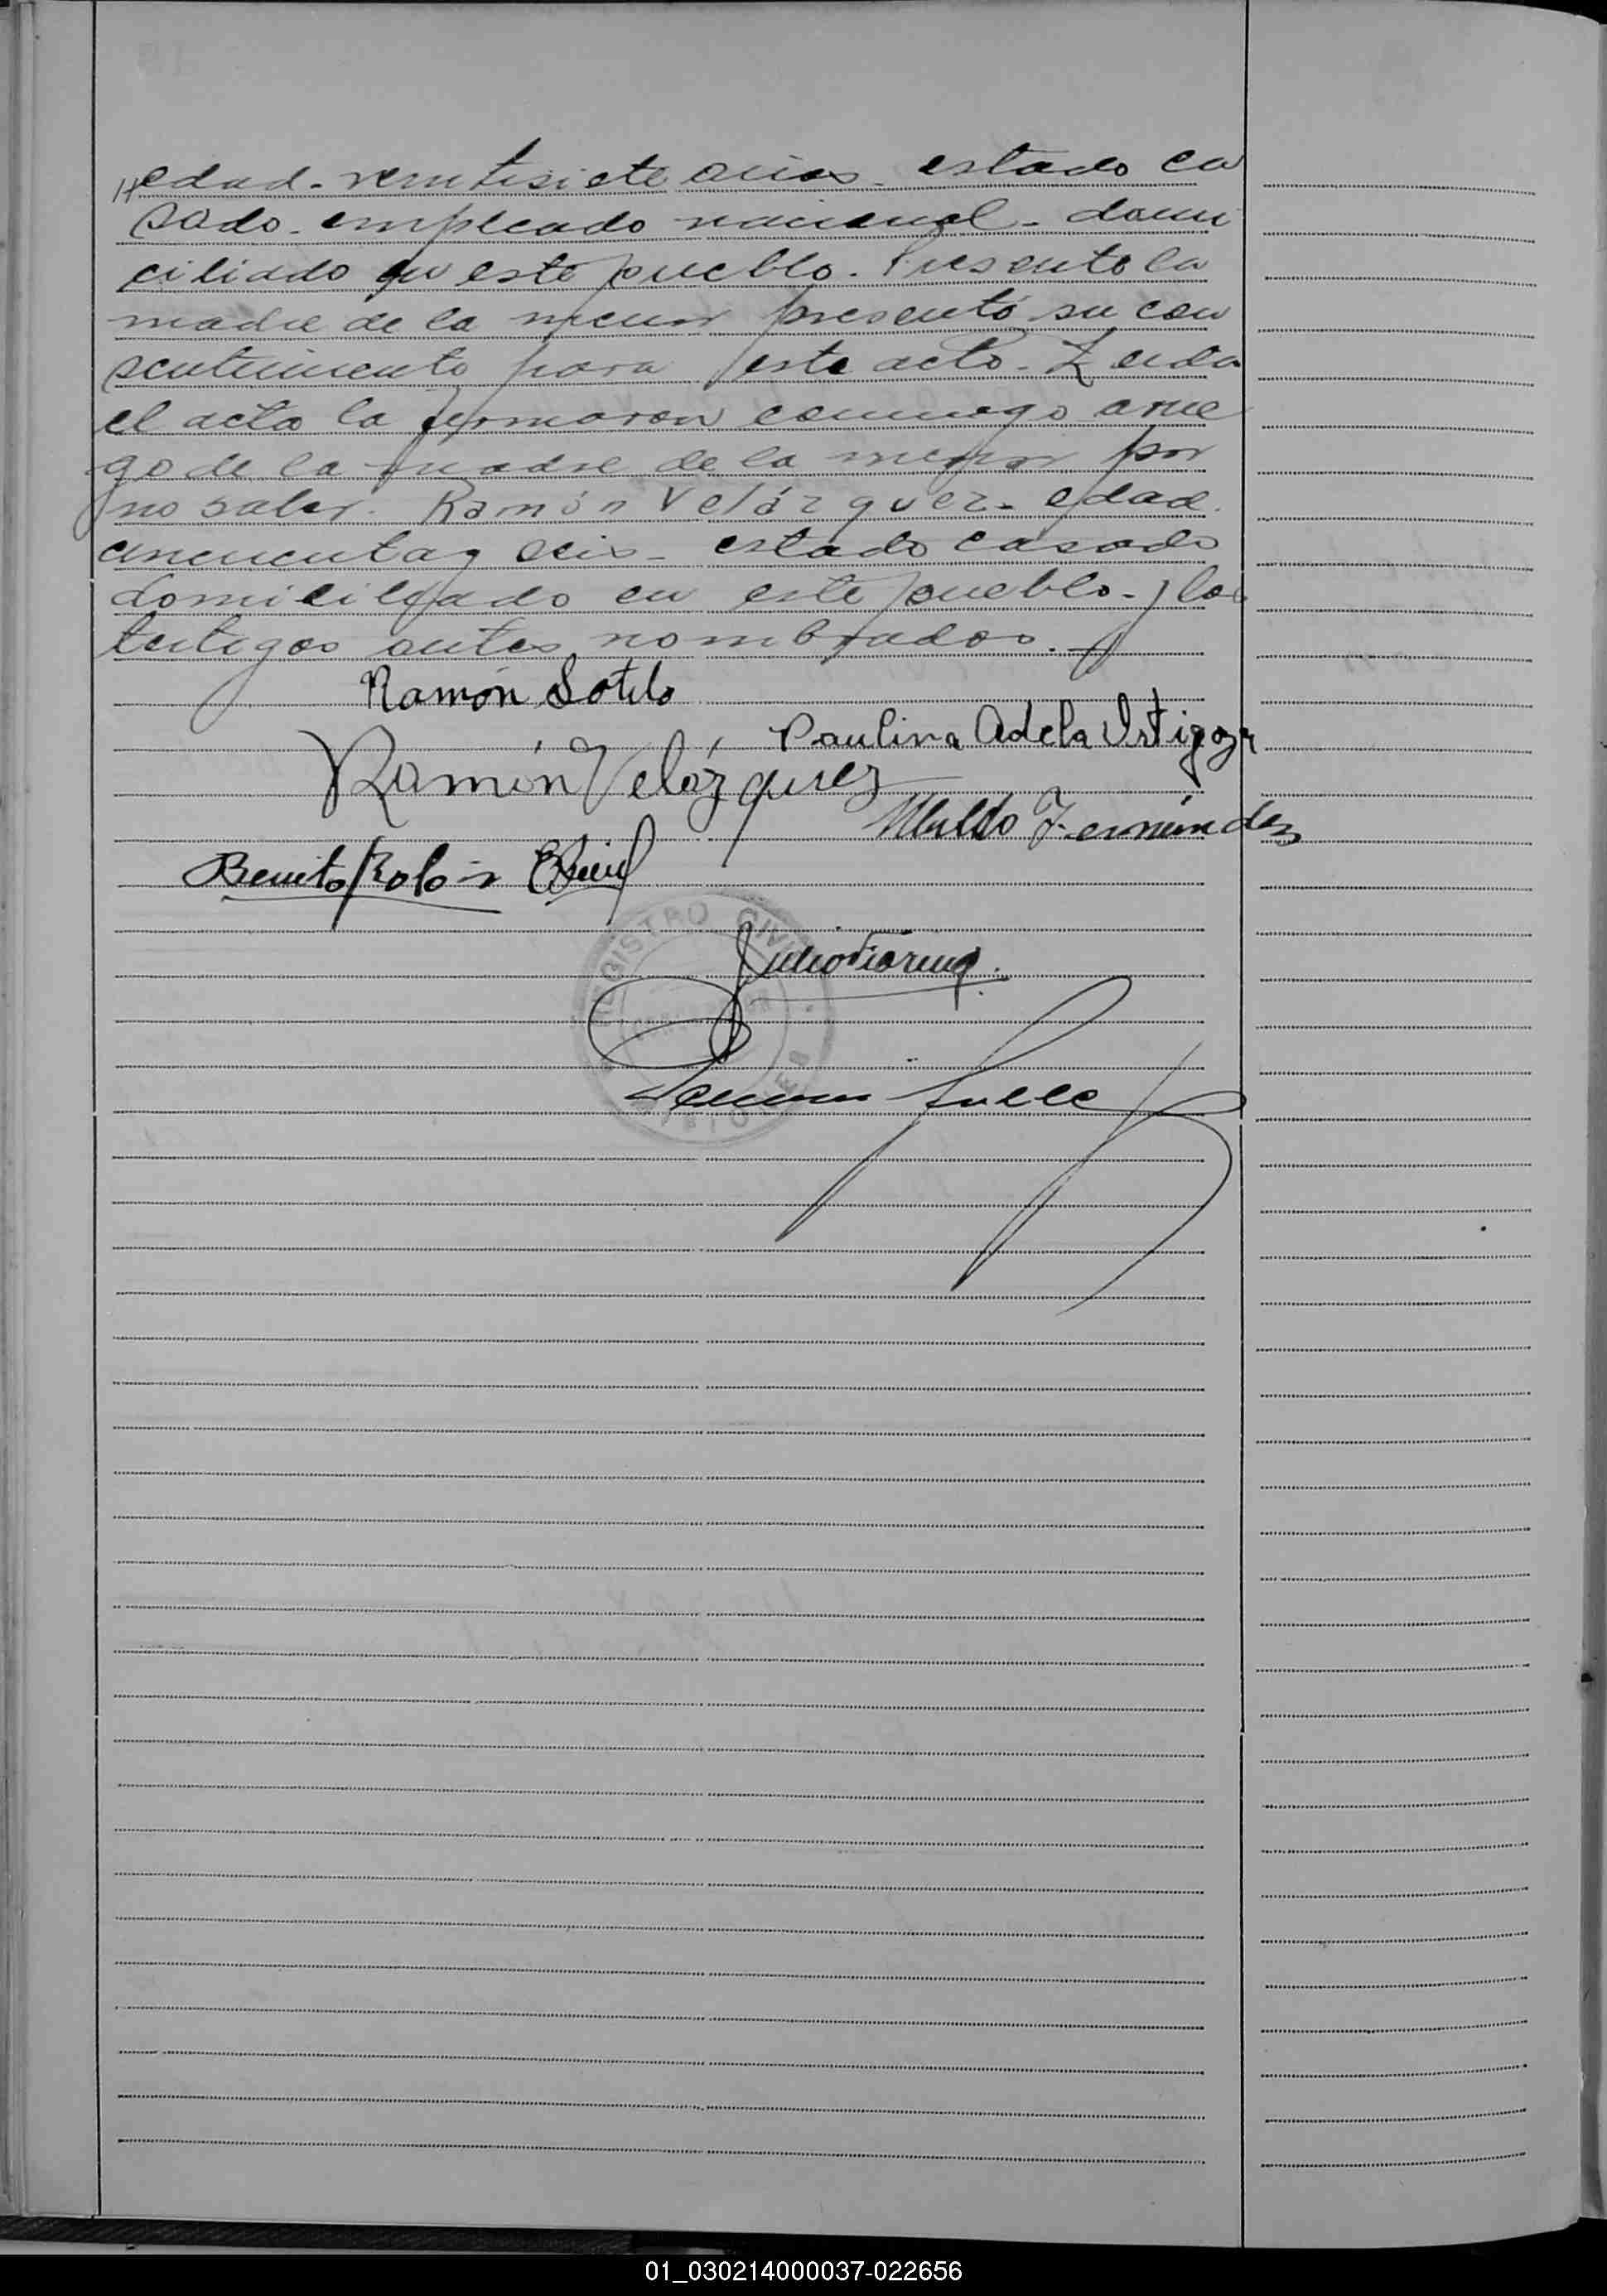 edad. ventisiete años. estado ca
sado. empleado nacional. domi
ciliado en este pueblo. Presente la
madre de la menor presentó su con
sentimiento para este acto. Leida
el acta la firmaron conmigo a rue
go de la madre de la menor por
no saber. Ramón Velázquez. edad.
cincuenta y seis. estado casado
domiciliado en este pueblo. y los
testigos antes nombrados.
Ramón Sotelo
Paulina Adela Istigoza
Ramón Velázquez
Ubaldo Fernández
Benito Rolón
REGISTRO CIVIL
Julio
01_030214000037-022656